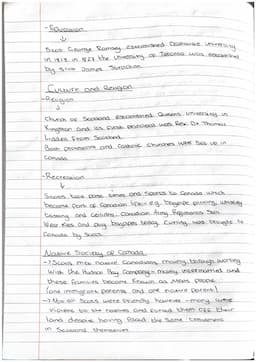 - Education
↓
Scot George Ramsay established Dalhousie university
in 1818. in 1827 the university of Toronto was established
by Scot James Strachan.
Culture and Religion
- Religion
↓
Church of Scotland established Queens University in
Kingston and its first principal was Rev Dr Thomas
Liddell from Scotland.
Both protestant and Catholic Churches were set up in
Canada.
- Recreation
↓
Scots took past times and sports to Canada which
became part of Canadian life e.g. bagpipe playing, whiskey
tasting and Ceilidhs. Canadian Army Regiments still
wear kilts and play bagpipes today. Curling was bought to
Canada by Scots.
Native Society of Canada
→ Scots met native Canadians mainly through working
with the Hudson Bay Company. Many intermarried and
these families became known as Metis people
(one immigrant parents and one native parent)
→ Most Scots were friendly however many were
violent to the natives and forced them off their
land despite having faced the same treatment
in Scotland themselves